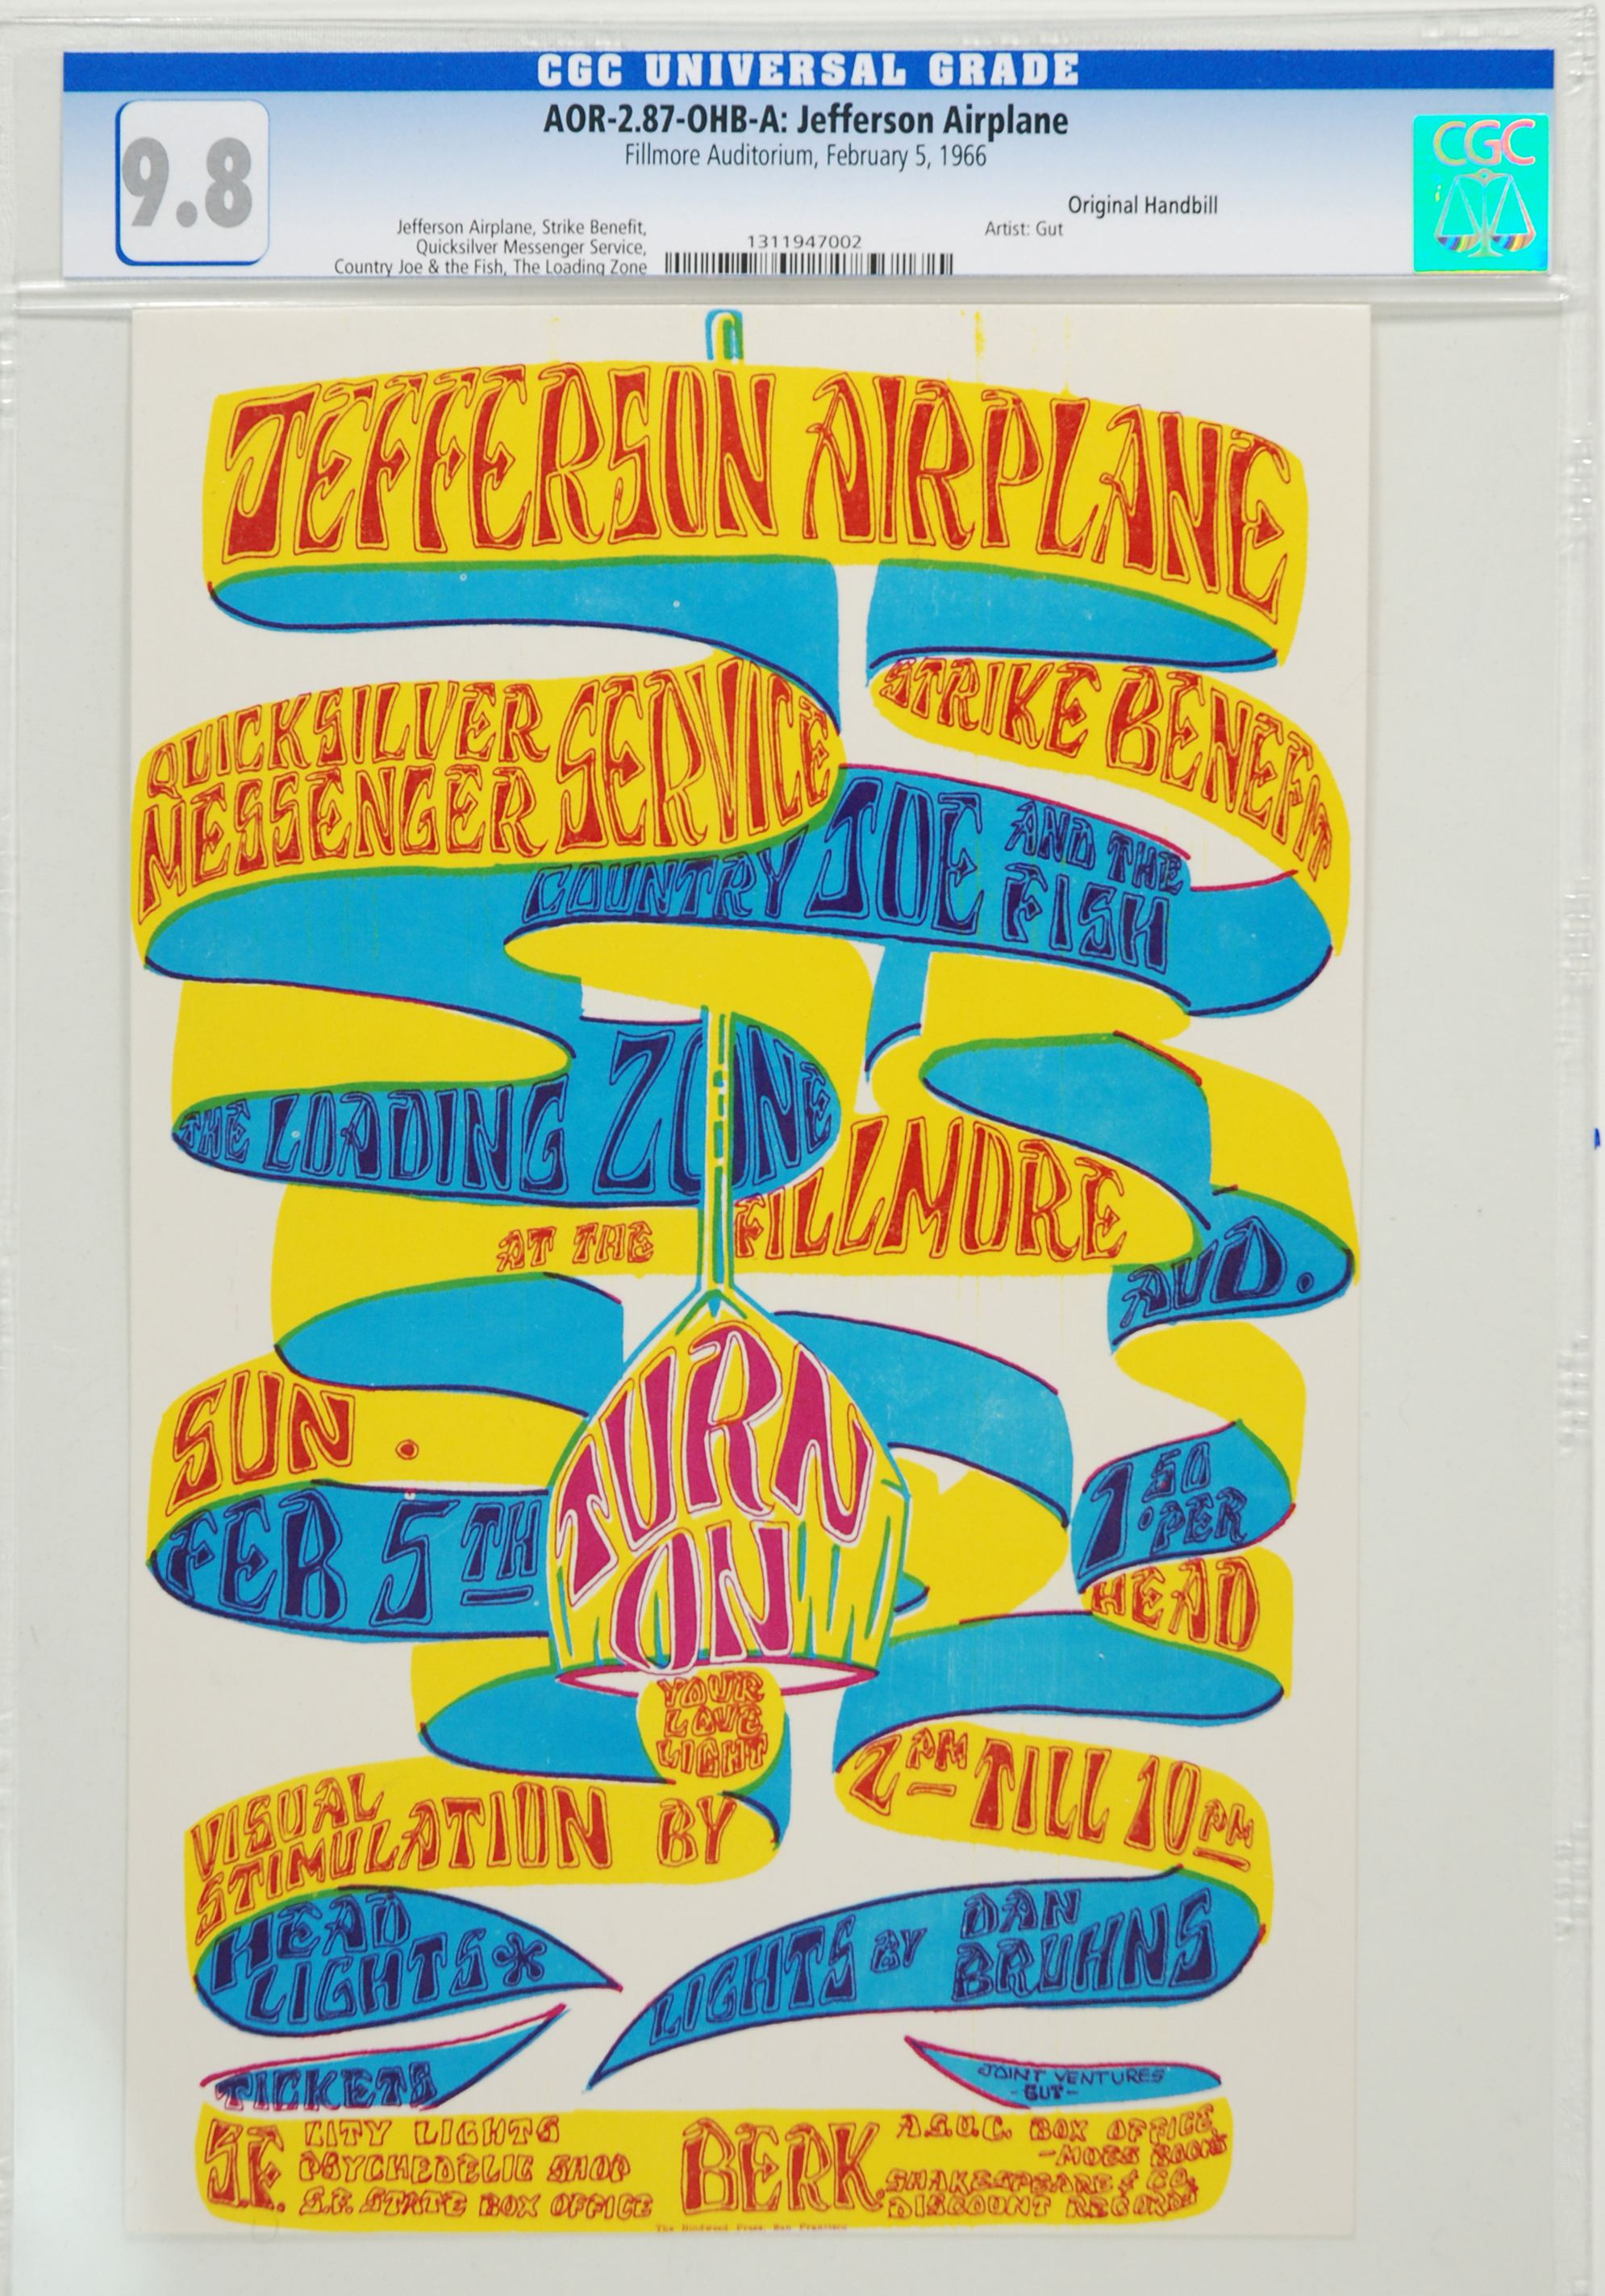 CGC UNIVERSAL GRADE
9.8
AOR-2.87-OHB-A: Jefferson Airplane
Fillmore Auditorium, February 5, 1966
Original Handbill
Artist: Gut
Jefferson Airplane, Strike Benefit,
Quicksilver Messenger Service,
Country Joe & the Fish, The Loading Zone
1311947002
CGC
JEFFERSON AIRPLANE
STRIKE BENEFIT
QUICKSILVER
MESSENGER SERVICE
COUNTRY JOE AND THE
FISH
THE LOADING ZONE
AT THE FILLMORE
AUD.
SUN.
FEB 5TH
TURN
ON
YOUR
LOVE
LIGHT
1.50
PER
HEAD
2PM TILL 10PM
VISUAL
STIMULATION BY
HEAD
LIGHTS*
LIGHTS BY DAN
BRUHNS
TICKETS
JOINT VENTURES
-GUT-
S.F. CITY LIGHTS
PSYCHEDELIC SHOP
S.F. STATE BOX OFFICE
BERK. A.S.U.C. BOX OFFICE,
-MOES BOOKS
SHAKESPEARE & CO,
DISCOUNT RECORDS
The Bindweed Press, San Francisco